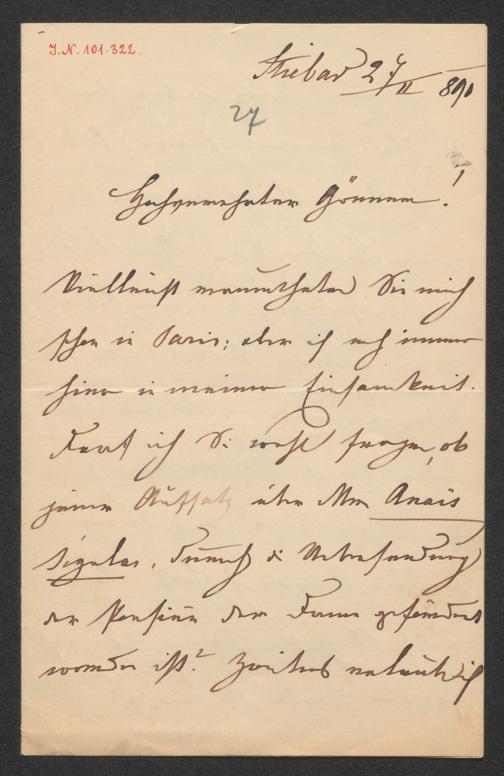 J.N. 101.322.
Stiebar 27/II 890
27
Hochverehrter Gönner!
Vielleicht vermutheten Sie mich
schon in Paris; aber ich noch immer
hier in meiner Einsamkeit.
Darf ich Sie wohl fragen, ob
jener Aufsatz über Mm Anaïs
Ségalas, durch die Übersendung
der Pension der Dame gefördert
worden ist? Zweitens erlaubte ich